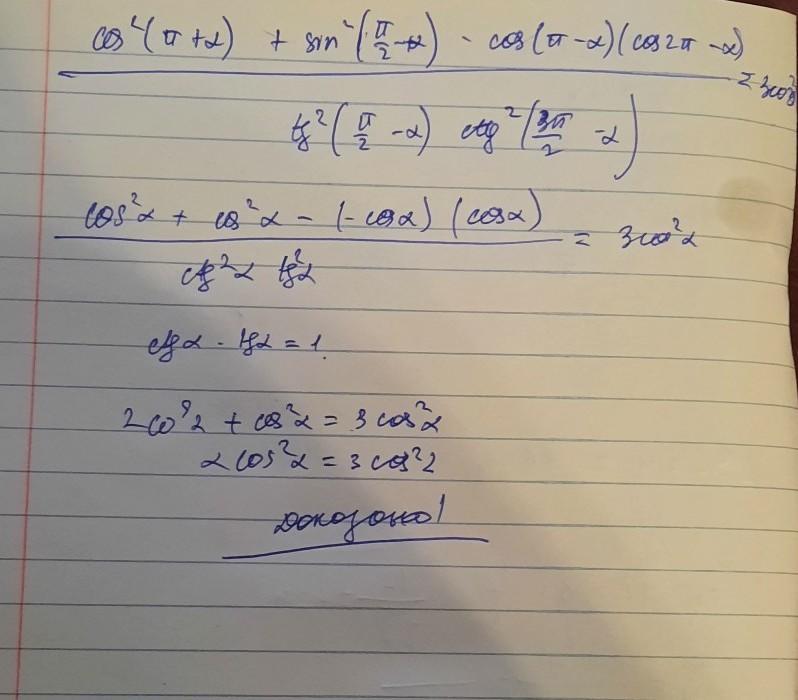 cos²(π+α) + sin²(π/2-α) - cos(π-α)(cos2π-α)
= 3cos²
tg²(π/2 -α) ctg²(3π/2 -α)
cos²α + cos²α - (-cosα) (cosα)
= 3cos²α
ctg²α tg²α
ctgα · tgα = 1.
2cos²α + cos²α = 3cos²α
2cos²α = 3cos²α
Доказано!